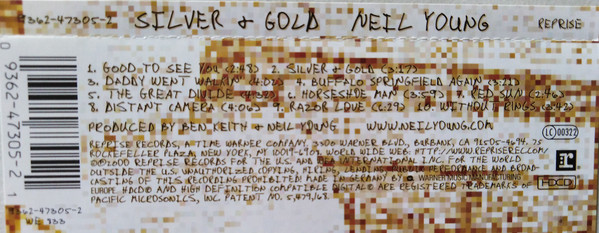 9362-47305-2 SILVER & GOLD NEIL YOUNG REPRISE
1. GOOD TO SEE YOU (2:48) 2. SILVER & GOLD (3:17)
3. DADDY WENT WALKIN' (4:02) 4. BUFFALO SPRINGFIELD AGAIN (3:23)
5. THE GREAT DIVIDE (4:33) 6. HORSESHOE MAN (3:59) 7. RED SUN (2:46)
8. DISTANT CAMERA (4:06) 9. RAZOR LOVE (6:29) 10. WITHOUT RINGS (3:42)
PRODUCED BY BEN KEITH & NEIL YOUNG WWW.NEILYOUNG.COM
REPRISE RECORDS, A TIME WARNER COMPANY 3300 WARNER BLVD., BURBANK, CA 91505-4694. 75
ROCKEFELLER PLAZA, NEW YORK, NY 10019-6908. WORLD WIDE WEB: HTTP://WWW.REPRISEREC.COM/
©℗2000 REPRISE RECORDS FOR THE U.S. AND WEA INTERNATIONAL INC. FOR THE WORLD
OUTSIDE THE U.S. UNAUTHORIZED COPYING, HIRING, LENDING, PUBLIC PERFORMANCE AND BROAD-
CASTING OF THIS RECORDING PROHIBITED! MADE IN GERMANY BY WARNER MUSIC MANUFACTURING
EUROPE. HDCD AND HIGH DEFINITION COMPATIBLE DIGITAL® ARE REGISTERED TRADEMARKS OF
PACIFIC MICROSONICS, INC. PATENT NO. 5,479,168.
LC 00322
HDCD
0 9362-47305-2 1
9362-47305-2
WE 833